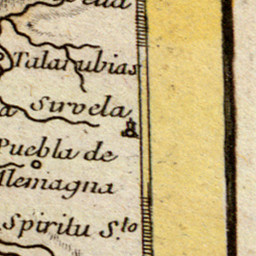 Talarubias
Sirvela
Puebla de
Alemagna
Spiritu S.to